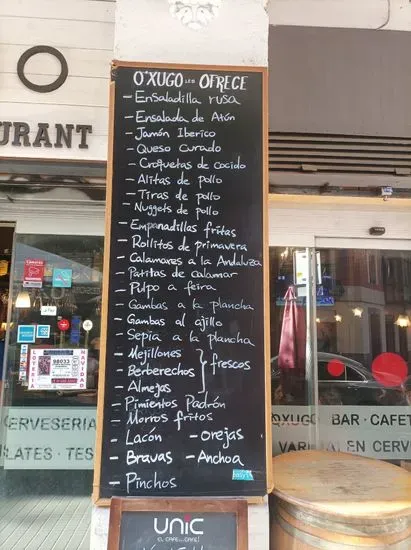 O'XUGO LES OFRECE
- Ensaladilla rusa
- Ensalada de Atún
- Jamón Iberico
- Queso Curado
- Croquetas de cocido
- Alitas de pollo
- Tiras de pollo
- Nuggets de pollo
- Empanadillas fritas
- Rollitos de primavera
- Calamares a la Andaluza
- Patitas de calamar
- Pulpo a feira
- Gambas a la plancha
- Gambas al ajillo
- Sepia a la plancha
- Mejillones
- Berberechos } frescos
- Almejas
- Pimientos Padrón
- Morros fritos
- Lacón - orejas
- Bravas - Anchoa
- Pinchos
UNIC
EL CAFÉ... CAFÉ!
URANT
LOTERIA
NAVIDAD
98033
CERVESERIA
LATES · TES
O'XUGO BAR · CAFET
EN CERV